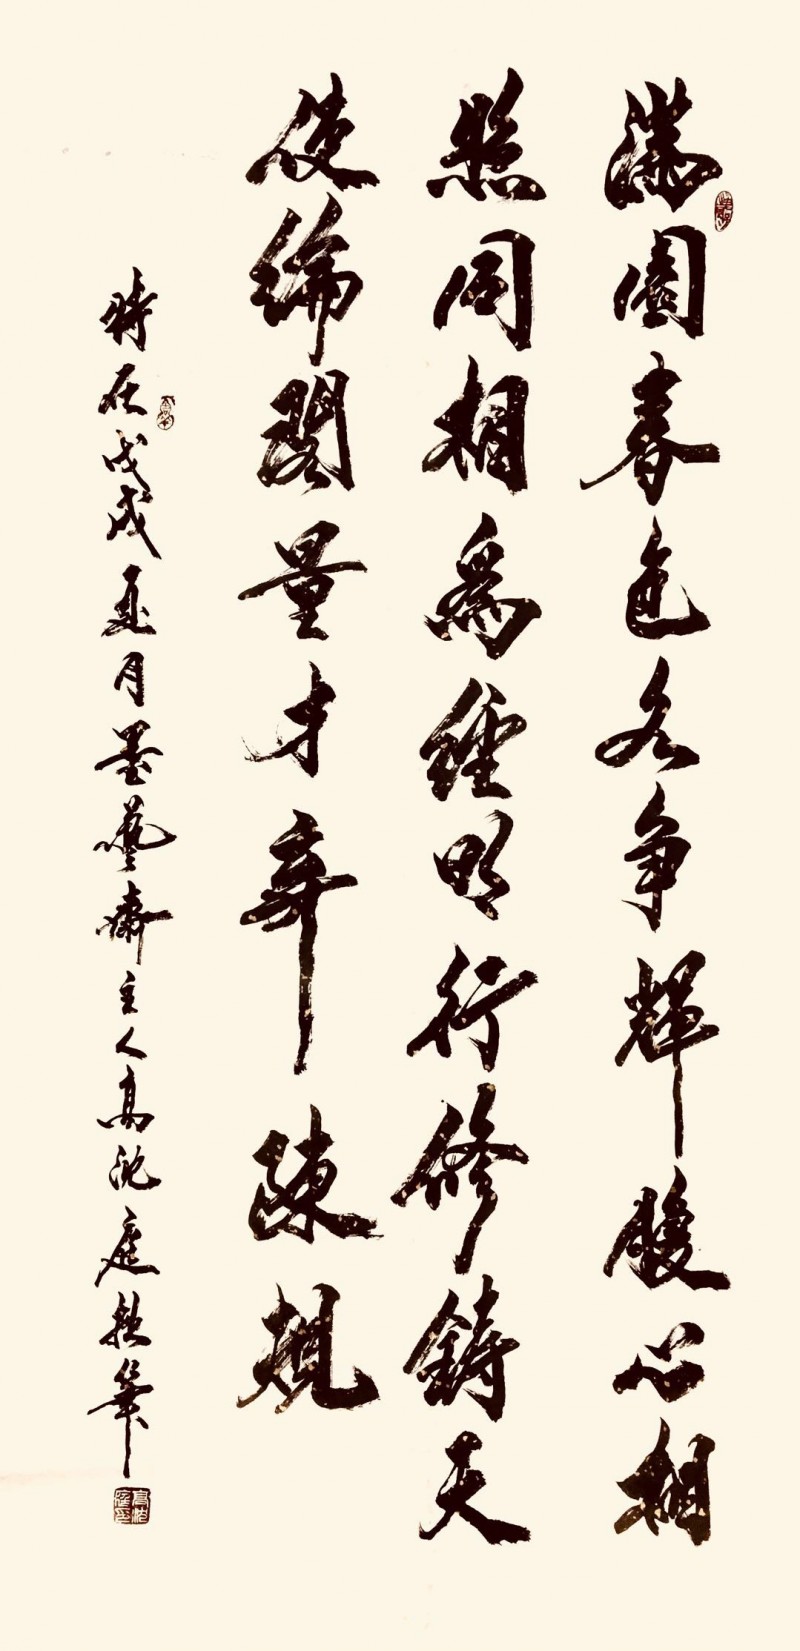 滿園春色各争輝暖心相
照同相為經明行修鑄天
使綸閣量才弃陳規
時在戊戌夏月墨藝齋主人高沈庭執筆